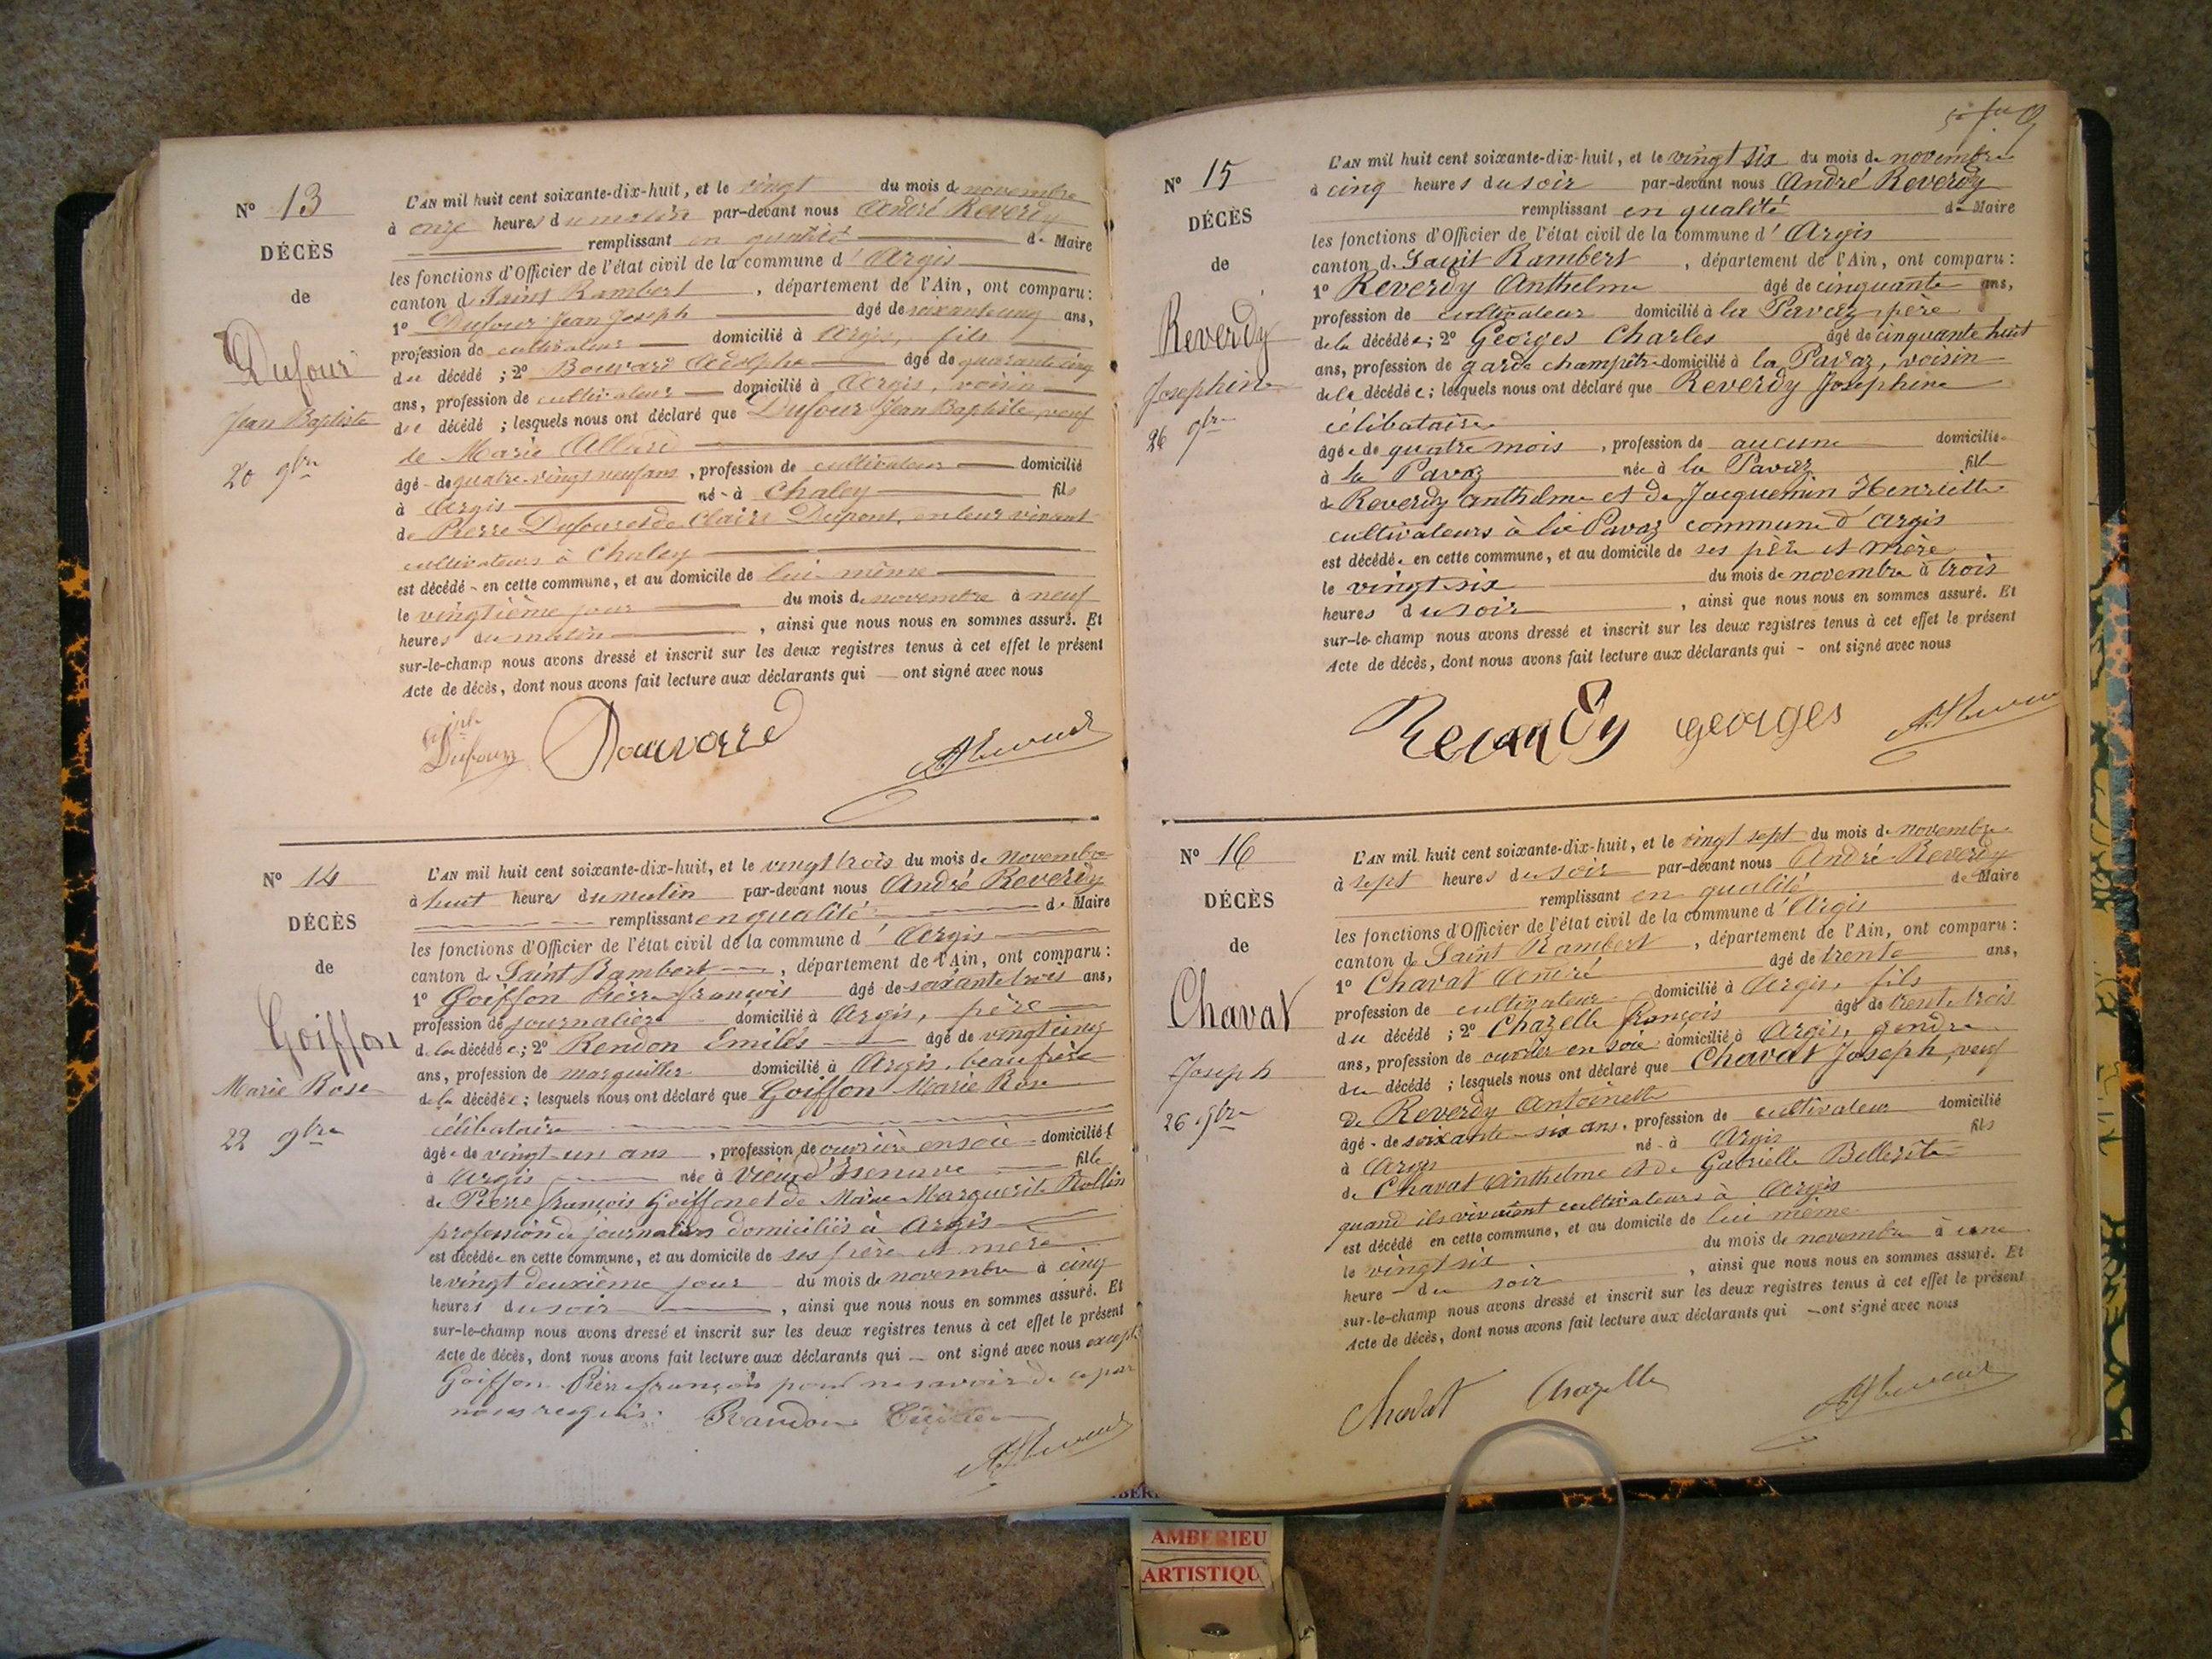 Nº 13
DÉCÈS
de
Dufour
Jean Baptiste
20 9bre
L'AN mil huit cent soixante-dix-huit, et le vingt du mois de novembre
à onze heures du matin par-devant nous André Reverdy
remplissant en qualité de Maire
les fonctions d'Officier de l'état civil de la commune d'Argis
canton de Saint Rambert, département de l'Ain, ont comparu:
1º Dufour Jean Joseph âgé de soixante cinq ans,
profession de cultivateur domicilié à Argis, fils
du décédé; 2º Bouvard Adolphe âgé de quarante cinq
ans, profession de cultivateur domicilié à Argis, voisin
du décédé; lesquels nous ont déclaré que Dufour Jean Baptiste, veuf
de Marie Allard
âgé de quatre-vingt neuf ans, profession de cultivateur domicilié
à Argis né à Chaley fils
de Pierre Dufour et de Claire Dupont, en leur vivant
cultivateurs à Chaley
est décédé en cette commune, et au domicile de lui-même
le vingtième jour du mois de novembre à neuf
heures du matin, ainsi que nous nous en sommes assuré. Et
sur-le-champ nous avons dressé et inscrit sur les deux registres tenus à cet effet le présent
Acte de décès, dont nous avons fait lecture aux déclarants qui ont signé avec nous
Dufour Bouvard
Nº 14
DÉCÈS
de
Goiffon
Marie Rose
22 9bre
L'AN mil huit cent soixante-dix-huit, et le vingt trois du mois de novembre
à huit heures du matin par-devant nous André Reverdy
remplissant en qualité de Maire
les fonctions d'Officier de l'état civil de la commune d'Argis
canton de Saint Rambert, département de l'Ain, ont comparu:
1º Goiffon Pierre françois âgé de soixante trois ans,
profession de journalier domicilié à Argis, père
de la décédée; 2º Rendon Emilès âgé de vingt cinq
ans, profession de marguiller domicilié à Argis, beau frère
de la décédée; lesquels nous ont déclaré que Goiffon Marie Rose
célibataire
âgée de vingt-un ans, profession de ouvrière en soie domiciliée
à Argis née à Vieu d'Isenave fille
de Pierre françois Goiffon et de Marie Marguerite Rollin
profession de journaliers domiciliés à Argis
est décédée en cette commune, et au domicile de ses père et mère
le vingt deuxième jour du mois de novembre à cinq
heures du soir, ainsi que nous nous en sommes assuré. Et
sur-le-champ nous avons dressé et inscrit sur les deux registres tenus à cet effet le présent
Acte de décès, dont nous avons fait lecture aux déclarants qui ont signé avec nous excepté
Goiffon Pierre françois pour ne savoir de ce par
nous requis. Randon
Nº 15
DÉCÈS
de
Reverdy
Josephine
26 9bre
L'AN mil huit cent soixante-dix-huit, et le vingt six du mois de novembre
à cinq heures du soir par-devant nous André Reverdy
remplissant en qualité de Maire
les fonctions d'Officier de l'état civil de la commune d'Argis
canton de Saint Rambert, département de l'Ain, ont comparu:
1º Reverdy Anthelme âgé de cinquante ans,
profession de cultivateur domicilié à la Pavaz, père
de la décédée; 2º Georges Charles âgé de cinquante huit
ans, profession de garde champêtre domicilié à la Pavaz, voisin
de la décédée; lesquels nous ont déclaré que Reverdy Josephine
célibataire
âgée de quatre mois, profession de aucune domiciliée
à la Pavaz née à la Pavaz fille
de Reverdy Anthelme et de Jacquemin Henriette
cultivateurs à la Pavaz commune d'Argis
est décédée en cette commune, et au domicile de ses père et mère
le vingt six du mois de novembre à trois
heures du soir, ainsi que nous nous en sommes assuré. Et
sur-le-champ nous avons dressé et inscrit sur les deux registres tenus à cet effet le présent
Acte de décès, dont nous avons fait lecture aux déclarants qui - ont signé avec nous
Reverdy georges
Nº 16
DÉCÈS
de
Chavat
Joseph
26 9bre
L'AN mil huit cent soixante-dix-huit, et le vingt sept du mois de novembre
à sept heures du soir par-devant nous André Reverdy
remplissant en qualité de Maire
les fonctions d'Officier de l'état civil de la commune d'Argis
canton de Saint Rambert, département de l'Ain, ont comparu:
1º Chavat André âgé de trente ans,
profession de cultivateur domicilié à Argis, fils
du décédé; 2º Chazelle françois âgé de trente trois
ans, profession de ouvrier en soie domicilié à Argis, gendre
du décédé; lesquels nous ont déclaré que Chavat Joseph, veuf
de Reverdy Antoinette
âgé de soixante-six ans, profession de cultivateur domicilié
à Argis né à Argis fils
de Chavat Anthelme et de Gabrielle Bellerite
quand ils vivaient cultivateurs à Argis
est décédé en cette commune, et au domicile de lui même
le vingt six du mois de novembre à une
heure du soir, ainsi que nous nous en sommes assuré. Et
sur-le-champ nous avons dressé et inscrit sur les deux registres tenus à cet effet le présent
Acte de décès, dont nous avons fait lecture aux déclarants qui - ont signé avec nous
Chavat Chazelle
AMBERIEU
ARTISTIQU